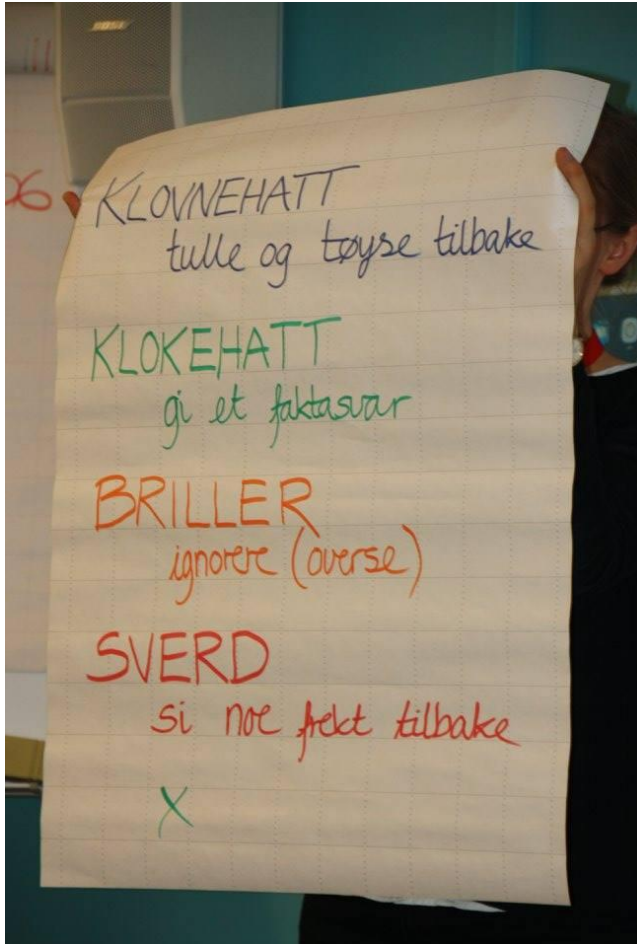 BOSE
06
KLOVNEHATT
tulle og tøyse tilbake
KLOKEHATT
gi et faktasvar
BRILLER
ignorere (overse)
SVERD
si noe frekt tilbake
X